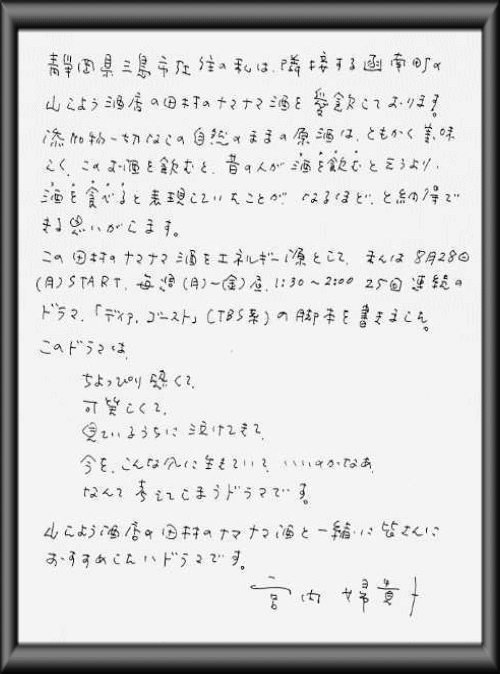 静岡県三島市在住の私は、隣接する函南町の
山にしよう酒店の田村のナマナマ酒を愛飲しております。
添加物一切なしの自然のままの原酒は、ともかく美味
しく、このお酒を飲むと、昔の人が酒を飲むと言うより、
酒を食べると表現していたことが、なるほど、と納得で
きる思いがします。
この田村のナマナマ酒をエネルギー源として、私は8月28日
(月)START、毎週(月)〜(金)昼、1:30〜2:00 25回連続の
ドラマ、「ディア、ゴースト」(TBS系)の脚本を書きました。
このドラマは、
ちょっぴり怒くて、
可笑しくて、
見ているうちに泣けてきて、
今を、こんな風に生きていて、いいのかなあ、
なんて考えてしまうドラマです。
山にしよう酒店の田村のナマナマ酒と一緒に皆さんに
おすすめしたいドラマです。
宮内 婦貴子